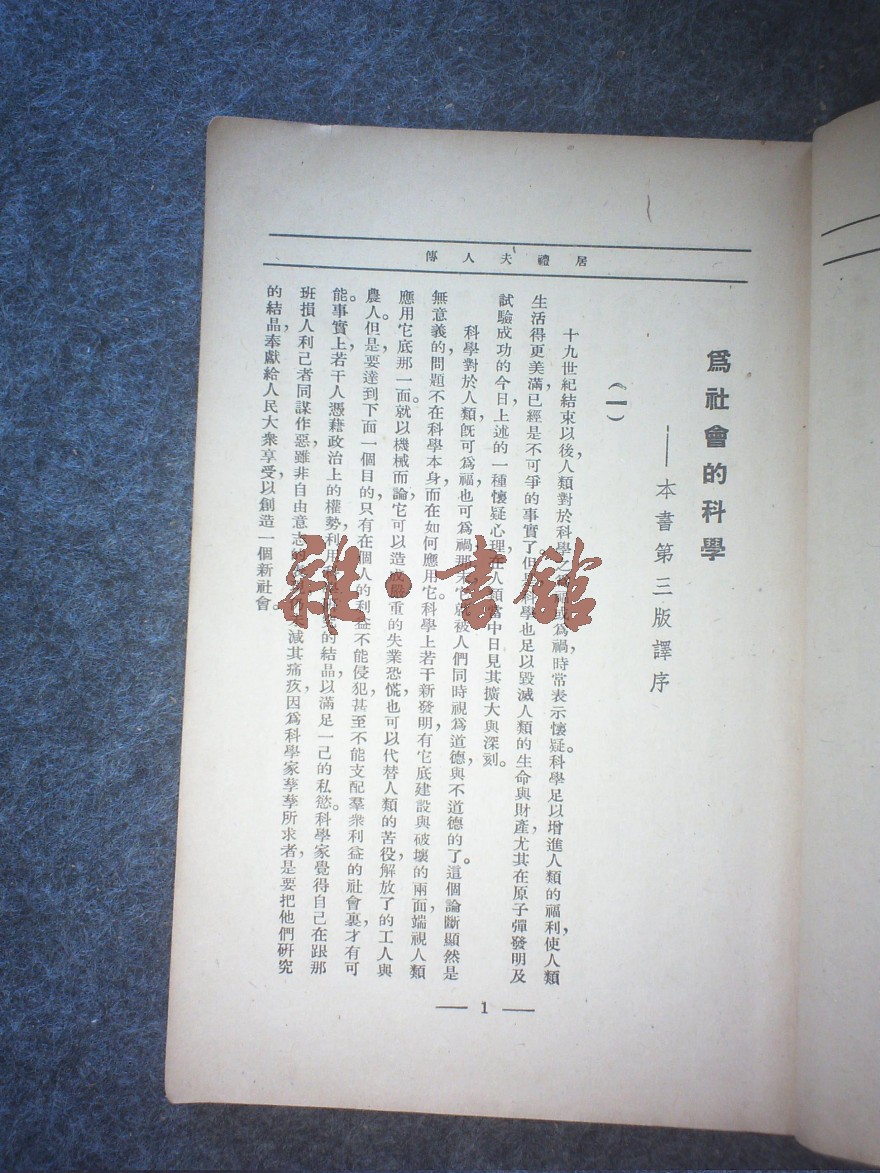 居禮夫人傳
爲社會的科學
——本書第三版譯序
(一)
十九世紀結束以後，人類對於科學之爲福或爲禍，時常表示懷疑。科學足以增進人類的福利，使人類
生活得更美滿，已經是不可爭的事實了。但科學也足以毀滅人類的生命與財產，尤其在原子彈發明及
試驗成功的今日，上述的一種懷疑心理，在人類當中日見其擴大與深刻。
科學對於人類，旣可爲福，也可爲禍，那末它就被人們同時視爲道德與不道德的了。這個論斷，顯然是
無意義的，問題不在科學本身，而在如何應用它。科學上若干新發明，有它底建設與破壞的兩面，端視人類
應用它底那一面。就以機械而論，它可以造成嚴重的失業恐慌，也可以代替人類的苦役，解放了的工人與
農人。但是，要達到下面一個目的，只有在個人的利益不能侵犯甚至不能支配羣衆利益的社會裏，才有可
能。事實上，若干人憑藉政治上的權勢，利用的結晶，以滿足一己的私慾。科學家覺得自己在跟那
班損人利己者同謀作惡，雖非自由意志的減其痛疚，因爲科學家孳孳所求者，是要把他們研究
的結晶，奉獻給人民大衆享受，以創造一個新社會。
— 1 —
雜·書館